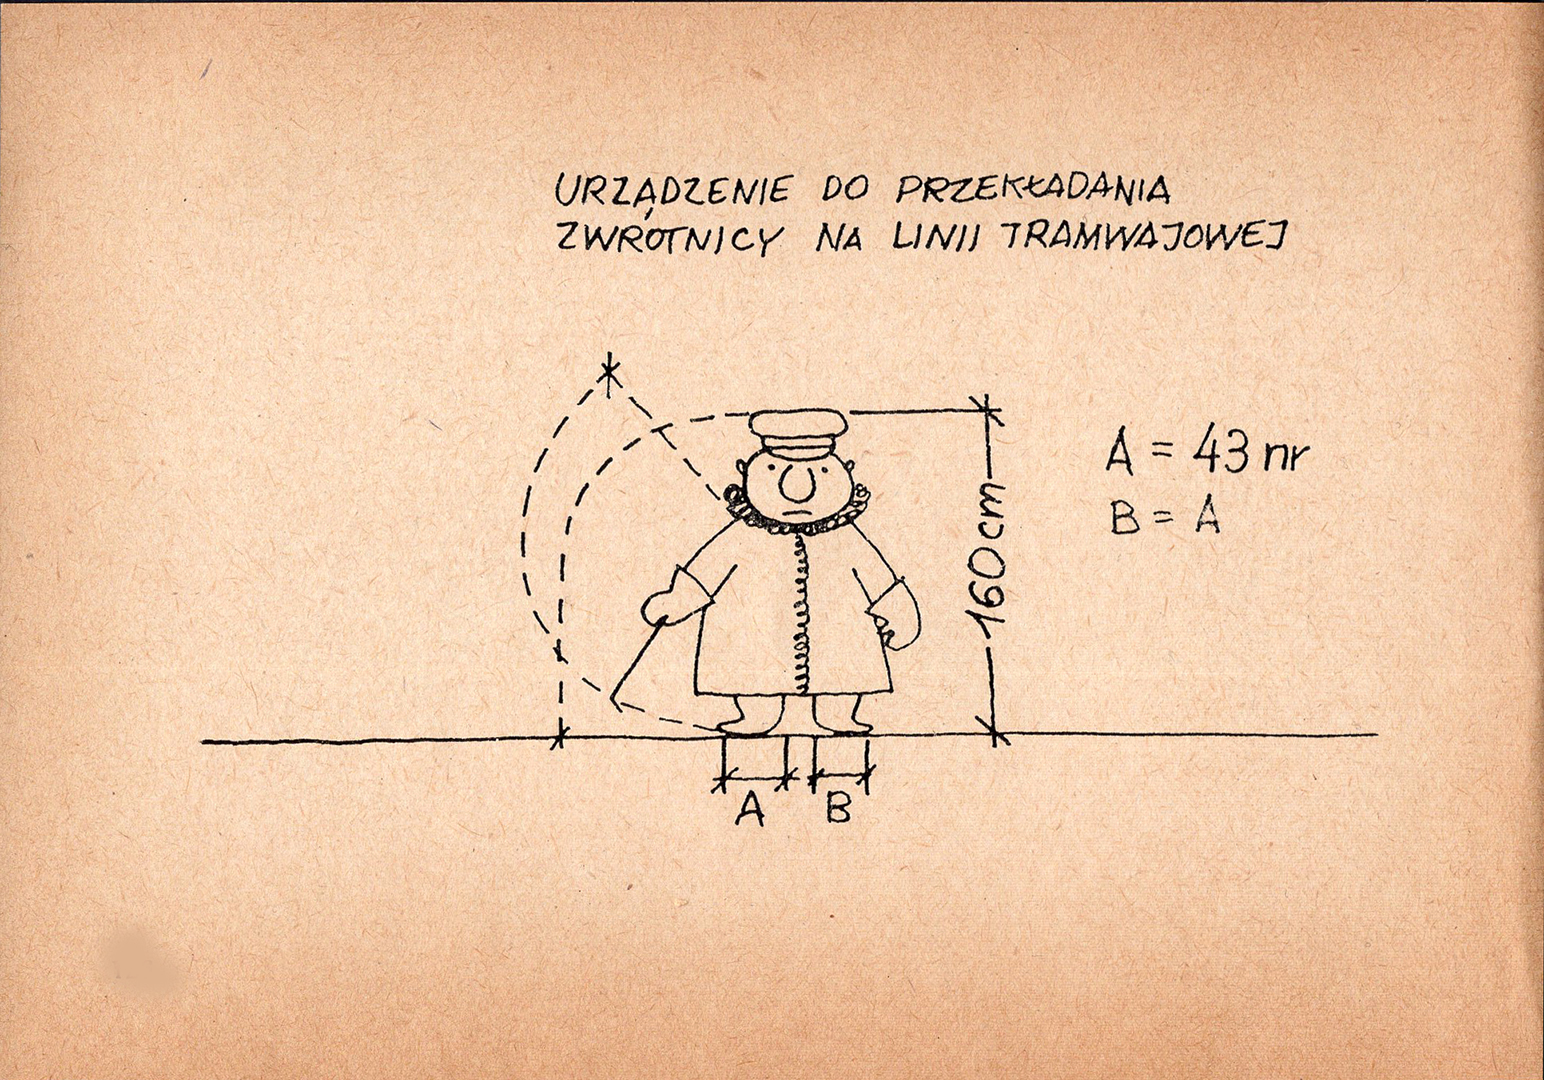 URZĄDZENIE DO PRZEKŁADANIA
ZWROTNICY NA LINII TRAMWAJOWEJ
160cm
A = 43 nr
B = A
A
B